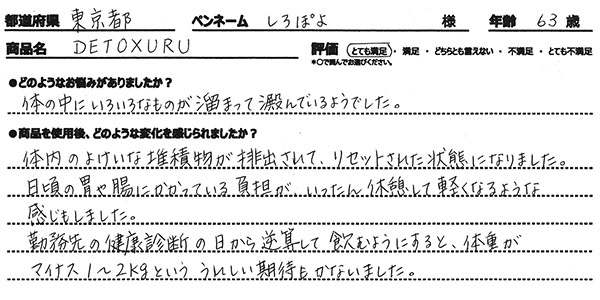 都道府県 東京都 ペンネーム しろぽよ 様 年齢 63 歳
商品名 DETOXURU 評価 とても満足・満足・どちらとも言えない・不満足・とても不満足
*〇で囲んでお選びください。
●どのようなお悩みがありましたか?
体の中にいろいろなものが溜まって澱んでいるようでした。
●商品を使用後、どのような変化を感じられましたか?
体内のよけいな堆積物が排出されて、リセットされた状態になりました。
日頃の胃や腸にかかっている負担が、いったん休憩して軽くなるような
感じもしました。
勤務先の健康診断の日から逆算して飲むようにすると、体重が
マイナス1〜2kgといううれしい期待もかないました。